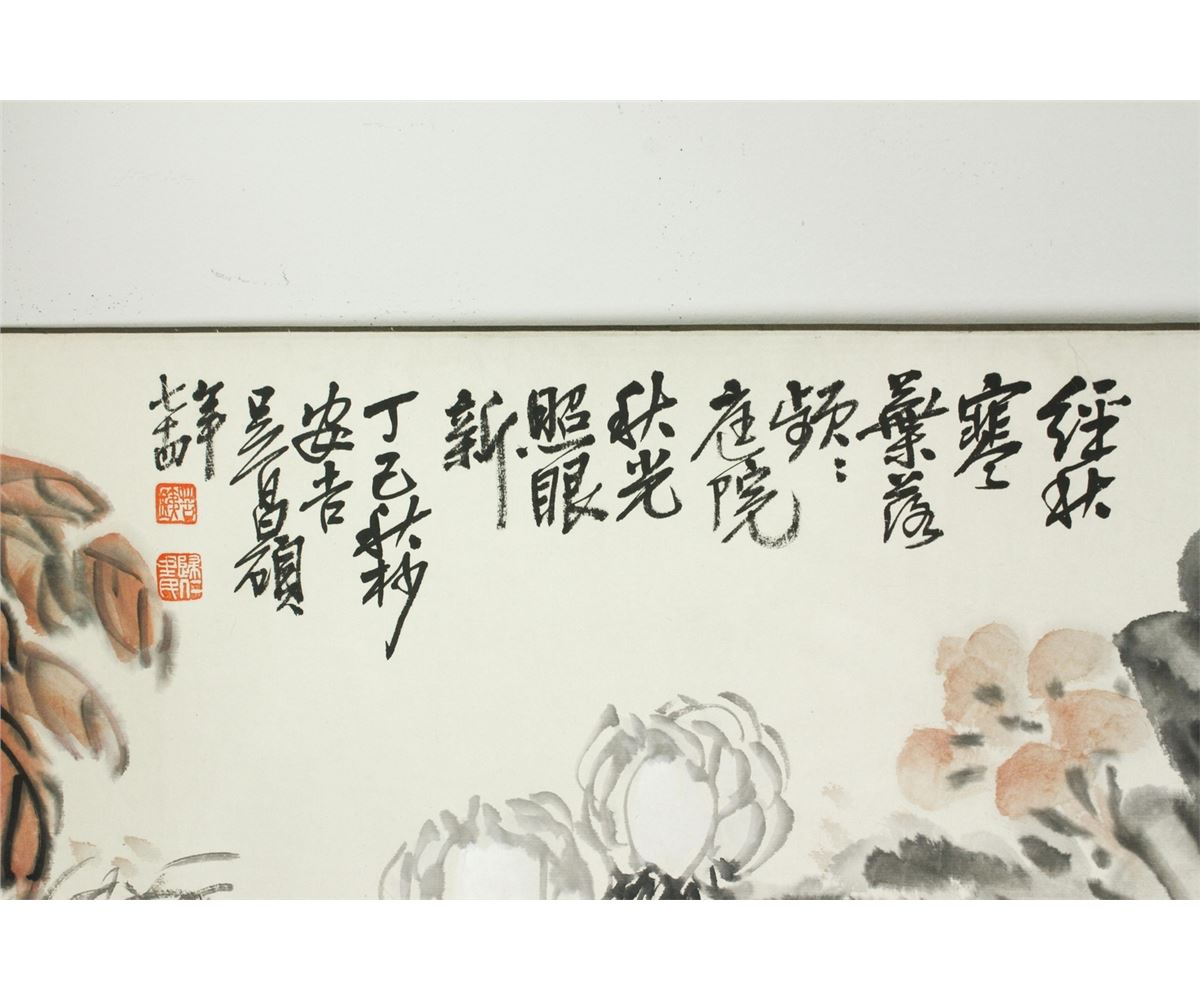 經秋
寒
葉落
頻〻
庭院
秋光
照眼
新
丁巳秋杪
安吉
吳昌碩
年
七十四
苦鐵
歸仁里民